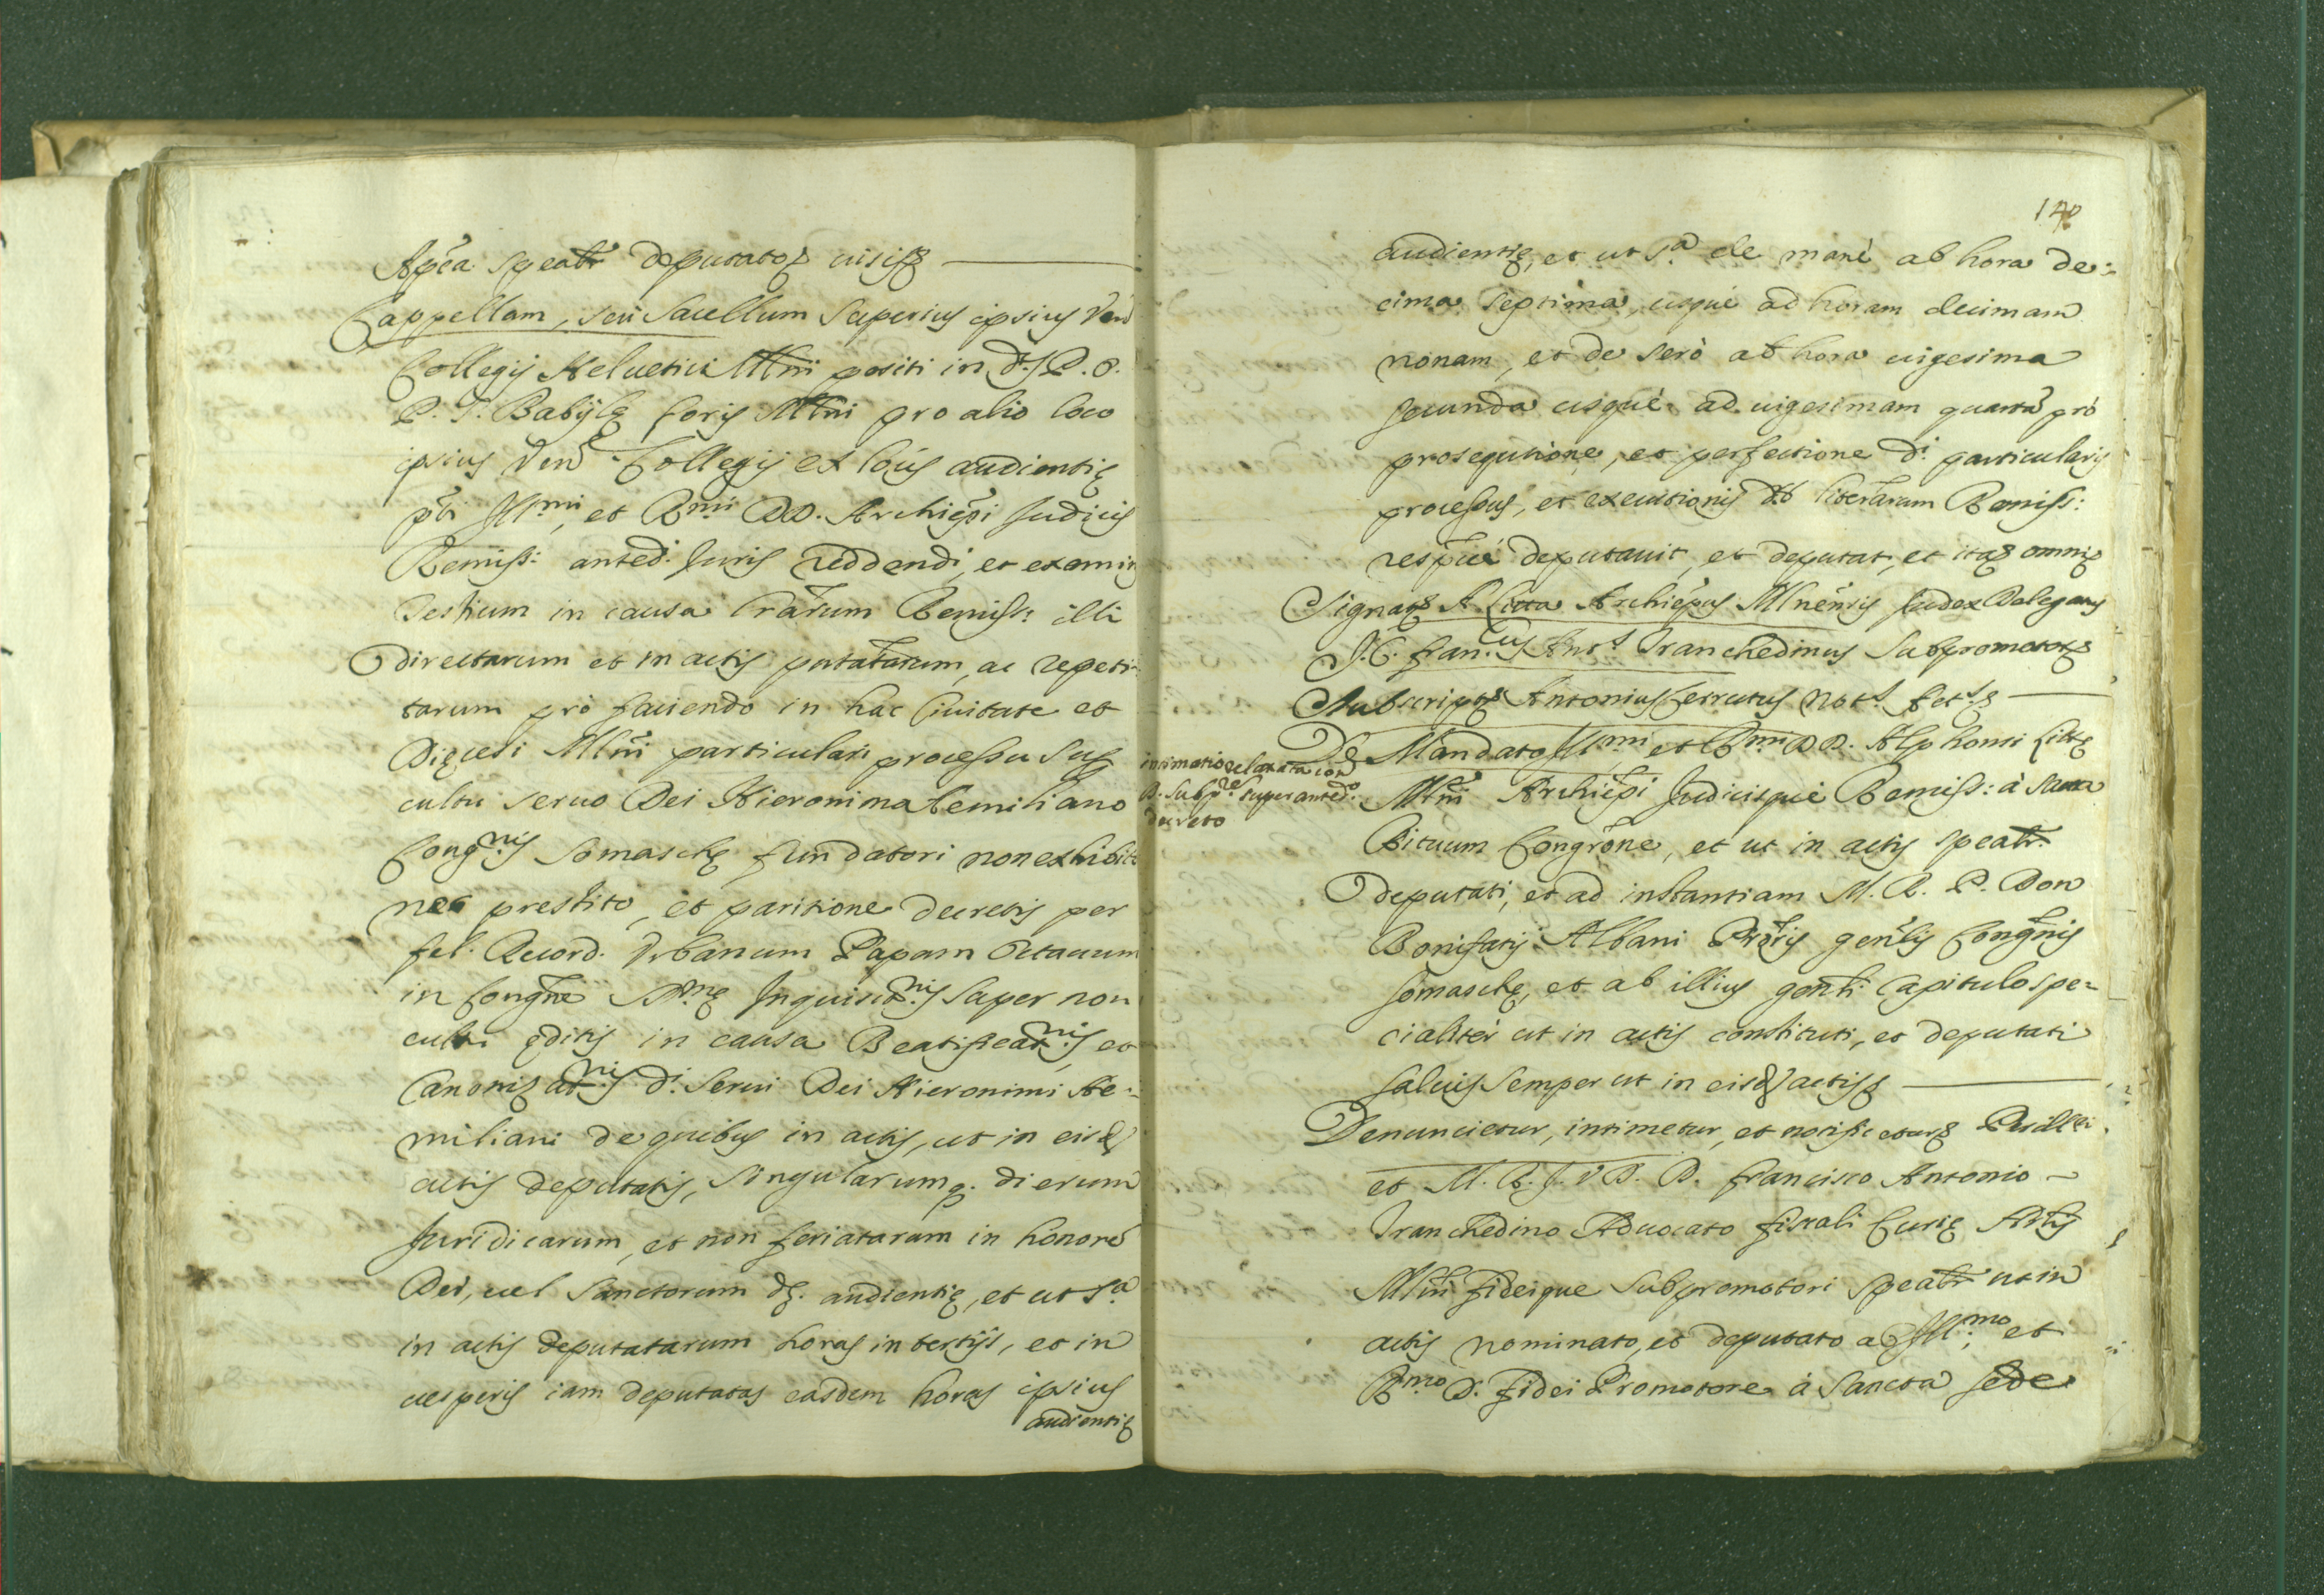 Aplica speatr deputator visisq
Cappellam, seù Sacellum Superius ipsius Ven
Collegij Helvetici Mlni positi in P. O.
P. S. Babijlę foris Mlni pro alio loco
ipsius Ven Collegij et locis audientię
pti Illmi, et Rmi DD. Archiepi Judicis
Remiss: anted. Juris reddendi, et examinis
Testium in causa lrarum Remiss: illi
directarum et in actis putatarum, ac repeti-
tarum prò faciendo in hac Civitate et
Dięcesi Mlni particulari processu sup
cultu servo Dei Hieronimo Aemiliano
Congnis Somaschę fundatori non exhibito
nec prestito, et paritione decretis per
fel. Record. Vrbanum Papam Octauum
in Congne Stnę Inquisitnis super non
cultu ęditis in causa Beatificatnis, et
Canonizatnis d. Servi Dei Hieronimi Ae-
miliani de quibus in actis, ut in eisd
actis deputatis, singularumq. dierum
Juridicarum, et non feriatarum in honore
Dei, vel Sanctorum audientię, et ut sa
in actis deputatarum horas in tertijs, et in
vesperis iam deputatas easdem horas ipsius
audientię
140
audientię, et ut sa de manè ab hora de-
cima septima, usquè ad horam decimam
nonam, et de serò ab hora vigesima
secunda usquè ad vigesimam quarta prò
prosequtione, et perfectione d. particularis
processus, et executionis literarum Remiss:
respuè deputavit, et deputat, et itaq omniq
Signatq A Litta Archiepus Mlnensis Judex Delegatus
J. C. Fran.cus Ant.s Tranchedinus Subpromotorq
Subscriptq Antonius Cerrutus Not.s Act.sq
intimatio relaxata con
D. Subpre super anted.o
decreto
De Mandato Illmi, et Rmi DD. Alphonsi Littę
Mlni Archiepi Judicisquè Remiss: à Sacra
Rituum Congrone, et ut in actis speatr.
deputati, et ad instantiam M. R. P. Don
Bonifatij Albani Prōris genlis Congnis
Somaschę, et ab illius genli Capitulo spe-
cialitèr ut in actis constituti, et deputati
salvis semper ut in eisd actisq
Denuncietur, intimetur, et notificeturq Perilli
et M. R. J. V. D. D. Francisco Antonio
Tranchedino Aduocato fiscali Curię Archlis
Mlni fideique Subpromotori speatr ut in
actis nominato, et deputato ab Illmo, et
Rmo D. fidei Promotore à Sancta Sede